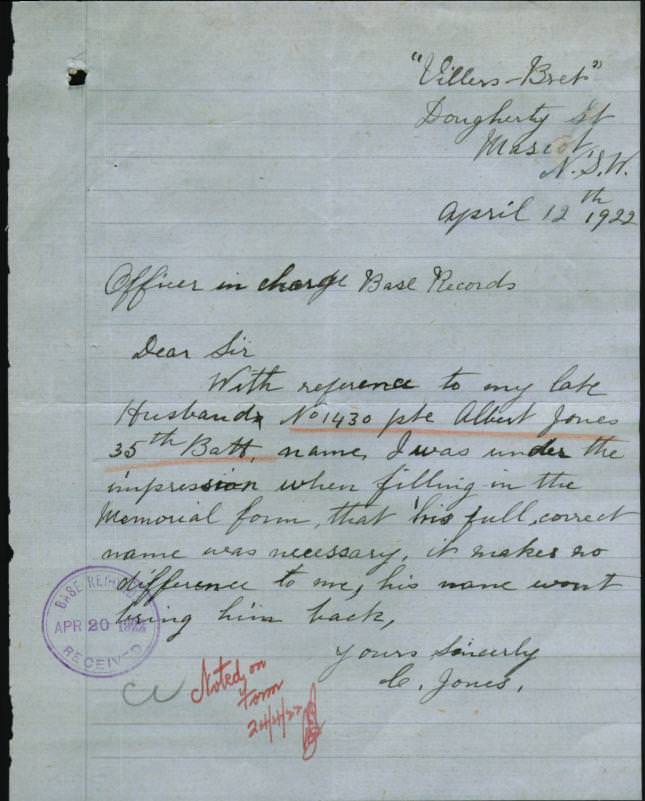 "Villers-Bret"
Dougherty St
Mascot
N.S.W.
April 12th 1922
Officer in charge Base Records
Dear Sir
With reference to my late
Husbands No 1430 pte Albert Jones
35th Batt, name, I was under the
impression when filling in the
Memorial form, that his full, correct
name was necessary, it makes no
difference to me, his name wont
bring him back,
Yours Sincerly
C. Jones.
BASE RECORDS
APR 20 1922
RECEIVED
Noted on
form
24/4/22